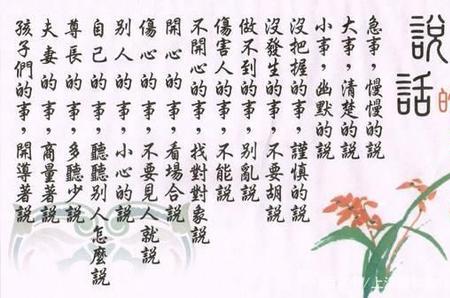 說話
的
急事，慢慢的說
大事，清楚的說
小事，幽默的說
沒把握的事，謹慎的說
沒發生的事，不要胡說
做不到的事，別亂說
傷害人的事，不能說
不開心的事，找對對象說
開心的事，看場合說
傷心的事，不要見人就說
別人的事，小心的說
自己的事，聽聽別人怎麼說
尊長的事，多聽少說
夫妻的事，商量著說
孩子們的事，開導著說